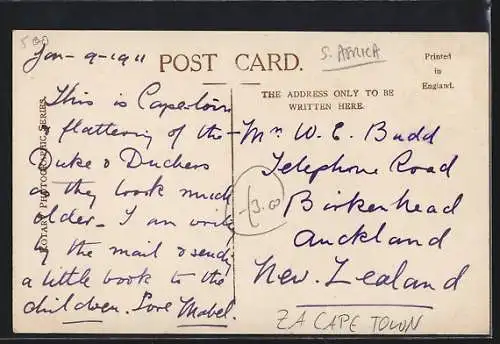 500
Jan-9-1911
POST CARD.
S. AFRICA
Printed
in
England.
THE ADDRESS ONLY TO BE
WRITTEN HERE.
ROTARY PHOTOGRAPHIC SERIES.
This is Capetown
& flattering of the
Duke & Duchess
as they look much
older - I am
by the mail & sendg
a little book to the
children. Love Mabel.
Mr. W. E. Budd
Telephone Road
Birkenhead
Auckland
New. Zealand
-13.00
ZA CAPE TOWN